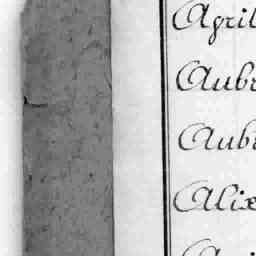 April
Aubr
Aub
Alix